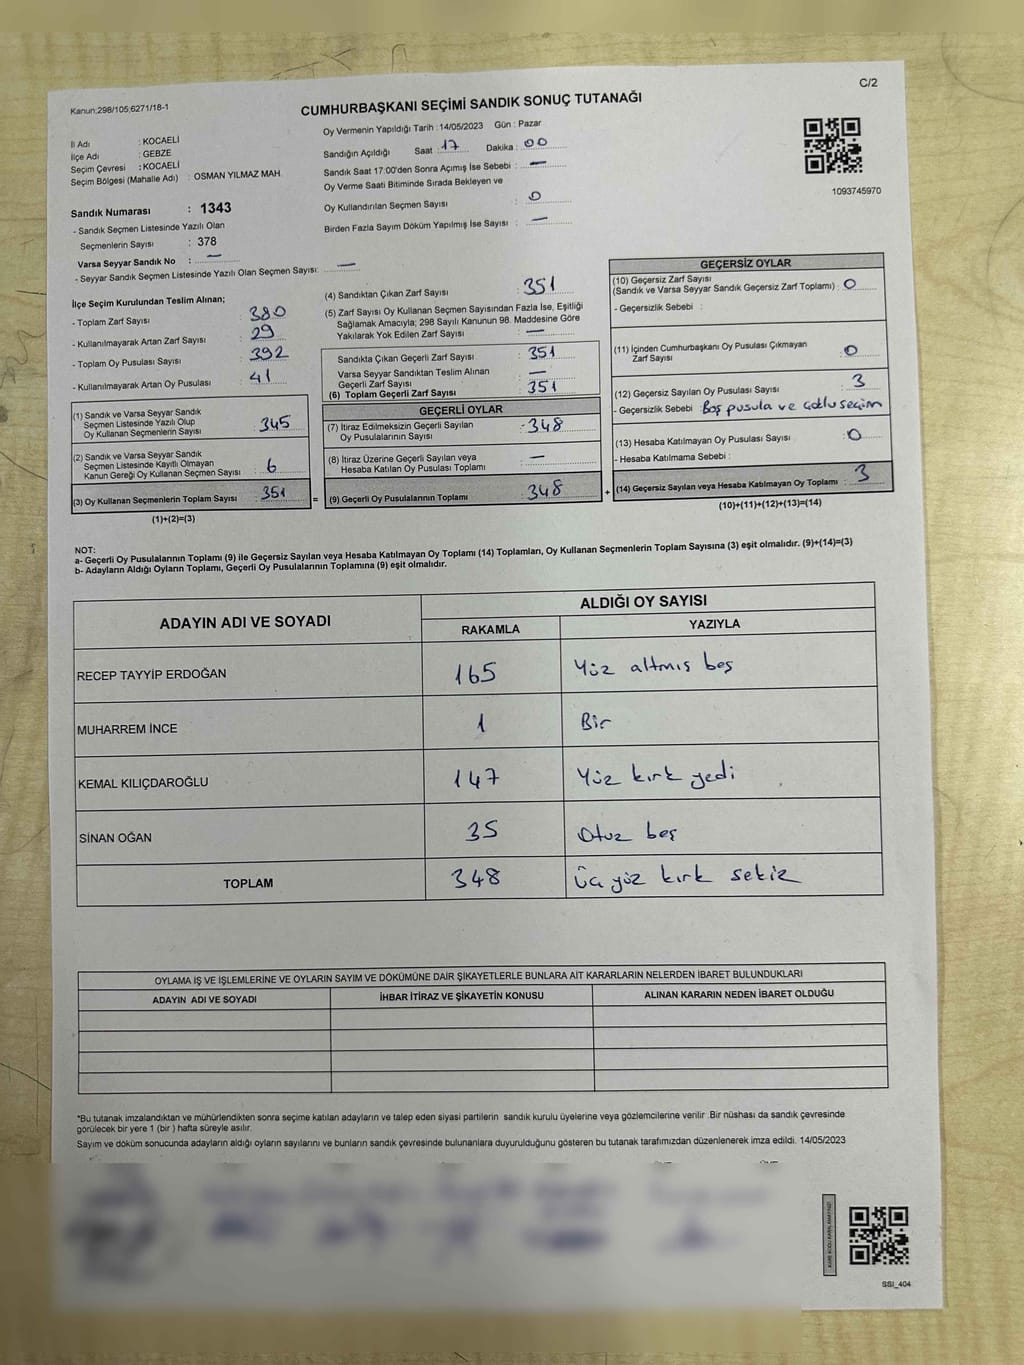 C/2
Kanun:298/105,6271/18-1
CUMHURBAŞKANI SEÇİMİ SANDIK SONUÇ TUTANAĞI
İl Adı : KOCAELİ
İlçe Adı : GEBZE
Seçim Çevresi : KOCAELİ
Seçim Bölgesi (Mahalle Adı) : OSMAN YILMAZ MAH.
Sandık Numarası : 1343
- Sandık Seçmen Listesinde Yazılı Olan
Seçmenlerin Sayısı : 378
Varsa Seyyar Sandık No : —
- Seyyar Sandık Seçmen Listesinde Yazılı Olan Seçmen Sayısı: —
Oy Vermenin Yapıldığı Tarih : 14/05/2023 Gün : Pazar
Sandığın Açıldığı Saat : 17 Dakika : 00
Sandık Saat 17:00'den Sonra Açımış İse Sebebi : —
Oy Verme Saati Bitiminde Sırada Bekleyen ve
Oy Kullandırılan Seçmen Sayısı : 0
Birden Fazla Sayım Döküm Yapılmış İse Sayısı : —
1093745970
İlçe Seçim Kurulundan Teslim Alınan;
- Toplam Zarf Sayısı : 380
- Kullanılmayarak Artan Zarf Sayısı : 29
- Toplam Oy Pusulası Sayısı : 392
- Kullanılmayarak Artan Oy Pusulası : 41
(1) Sandık ve Varsa Seyyar Sandık
Seçmen Listesinde Yazılı Olup
Oy Kullanan Seçmenlerin Sayısı : 345
(2) Sandık ve Varsa Seyyar Sandık
Seçmen Listesinde Kayıtlı Olmayan
Kanun Gereği Oy Kullanan Seçmen Sayısı : 6
(3) Oy Kullanan Seçmenlerin Toplam Sayısı : 351 =
(1)+(2)=(3)
(4) Sandıktan Çıkan Zarf Sayısı : 351
(5) Zarf Sayısı Oy Kullanan Seçmen Sayısından Fazla İse, Eşitliği
Sağlamak Amacıyla; 298 Sayılı Kanunun 98. Maddesine Göre
Yakılarak Yok Edilen Zarf Sayısı : —
Sandıkta Çıkan Geçerli Zarf Sayısı : 351
Varsa Seyyar Sandıktan Teslim Alınan
Geçerli Zarf Sayısı : —
(6) Toplam Geçerli Zarf Sayısı : 351
GEÇERLİ OYLAR
(7) İtiraz Edilmeksizin Geçerli Sayılan
Oy Pusulalarının Sayısı : 348
(8) İtiraz Üzerine Geçerli Sayılan veya
Hesaba Katılan Oy Pusulası Toplamı : —
(9) Geçerli Oy Pusulalarının Toplamı : 348 +
GEÇERSİZ OYLAR
(10) Geçersiz Zarf Sayısı
(Sandık ve Varsa Seyyar Sandık Geçersiz Zarf Toplamı) : 0
- Geçersizlik Sebebi :
(11) İçinden Cumhurbaşkanı Oy Pusulası Çıkmayan
Zarf Sayısı : 0
(12) Geçersiz Sayılan Oy Pusulası Sayısı : 3
- Geçersizlik Sebebi : Boş pusula ve çoklu seçim
(13) Hesaba Katılmayan Oy Pusulası Sayısı : 0
- Hesaba Katılmama Sebebi :
(14) Geçersiz Sayılan veya Hesaba Katılmayan Oy Toplamı : 3
(10)+(11)+(12)+(13)=(14)
NOT:
a- Geçerli Oy Pusulalarının Toplamı (9) ile Geçersiz Sayılan veya Hesaba Katılmayan Oy Toplamı (14) Toplamları, Oy Kullanan Seçmenlerin Toplam Sayısına (3) eşit olmalıdır. (9)+(14)=(3)
b- Adayların Aldığı Oyların Toplamı, Geçerli Oy Pusulalarının Toplamına (9) eşit olmalıdır.
ADAYIN ADI VE SOYADI
ALDIĞI OY SAYISI
RAKAMLA YAZIYLA
RECEP TAYYİP ERDOĞAN 165 Yüz altmış beş
MUHARREM İNCE 1 Bir
KEMAL KILIÇDAROĞLU 147 Yüz kırk yedi
SİNAN OĞAN 35 Otuz beş
TOPLAM 348 Üç yüz kırk sekiz
OYLAMA İŞ VE İŞLEMLERİNE VE OYLARIN SAYIM VE DÖKÜMÜNE DAİR ŞİKAYETLERLE BUNLARA AİT KARARLARIN NELERDEN İBARET BULUNDUKLARI
ADAYIN ADI VE SOYADI İHBAR İTİRAZ VE ŞİKAYETİN KONUSU ALINAN KARARIN NEDEN İBARET OLDUĞU
*Bu tutanak imzalandıktan ve mühürlendikten sonra seçime katılan adayların ve talep eden siyasi partilerin sandık kurulu üyelerine veya gözlemcilerine verilir. Bir nüshası da sandık çevresinde
görülecek bir yere 1 (bir) hafta süreyle asılır.
Sayım ve döküm sonucunda adayların aldığı oyların sayılarını ve bunların sandık çevresinde bulunanlara duyurulduğunu gösteren bu tutanak tarafımızdan düzenlenerek imza edildi. 14/05/2023
SSI_404